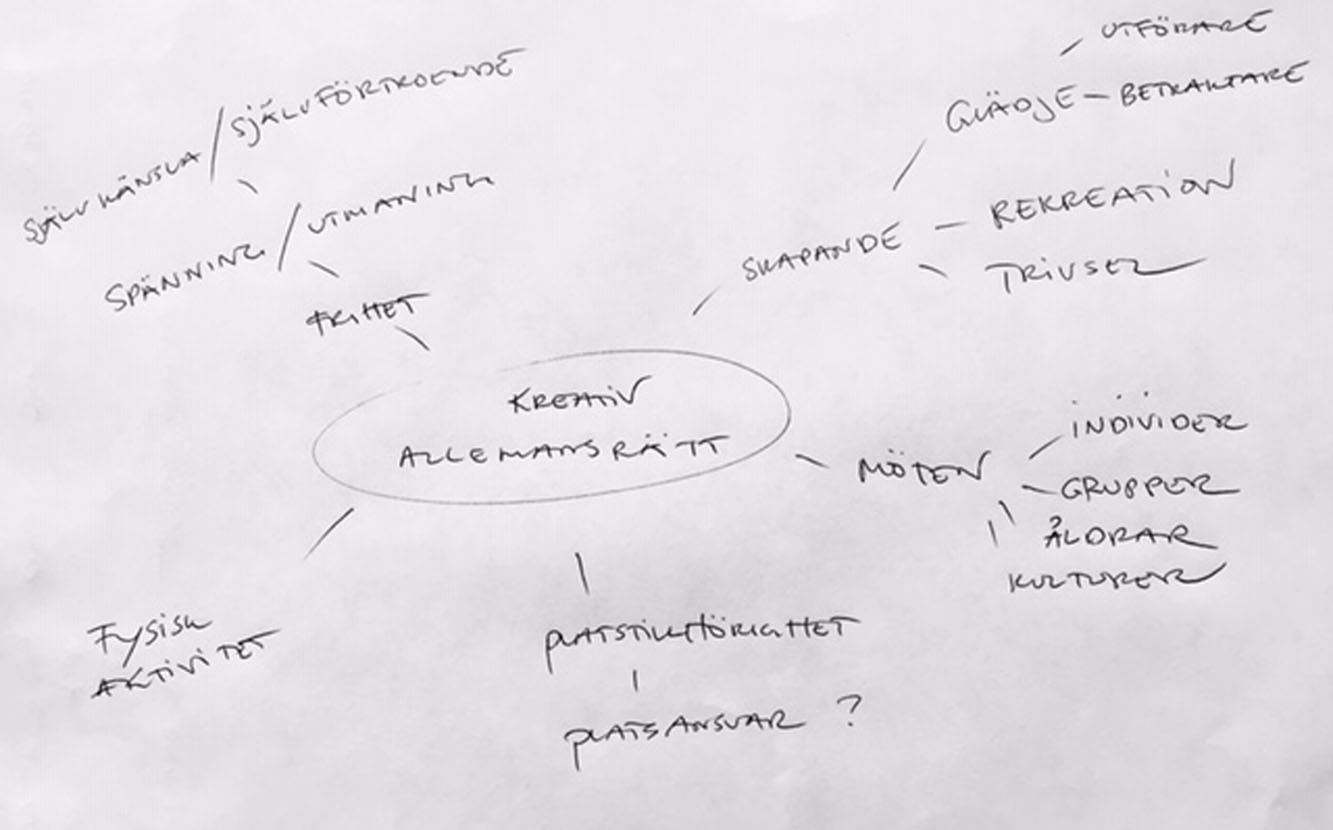 UTFÖRARE
GLÄDJE – BETRAKTARE
SJÄLVKÄNSLA / SJÄLVFÖRTROENDE
SPÄNNING / UTMANING
SKAPANDE – REKREATION
TRIVSEL
FRIHET
KREATIV
ALLEMANSRÄTT
INDIVIDER
MÖTEN – GRUPPER
ÅLDRAR
KULTURER
FYSISK
AKTIVITET
PLATSTILLHÖRIGHET
PLATSANSVAR ?